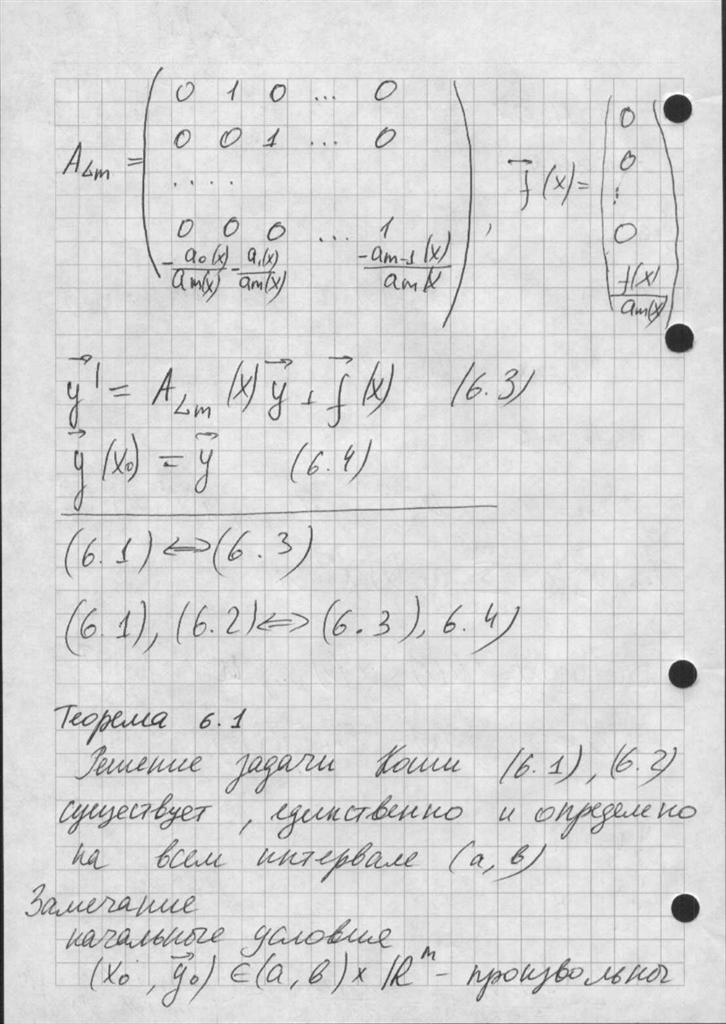 A_{Lm} = ( 0 1 0 ... 0
0 0 1 ... 0
. . . .
0 0 0 ... 1
-a₀(x)/am(x) -a₁(x)/am(x) -am-1(x)/am(x ) , f⃗(x) = ( 0 0 ⋮ 0 f(x)/am(x) )
y⃗' = A_{Lm}(x) y⃗ + f⃗(x) (6.3)
y⃗(x₀) = y⃗ (6.4)
(6.1) <=> (6.3)
(6.1), (6.2) <=> (6.3), 6.4)
Теорема 6.1
Решение задачи Коши (6.1), (6.2)
существует, единственно и определено
на всем интервале (a, в)
Замечание
начальные условия
(x₀, y⃗₀) ∈ (a, в) × ℝᵐ - произвольны